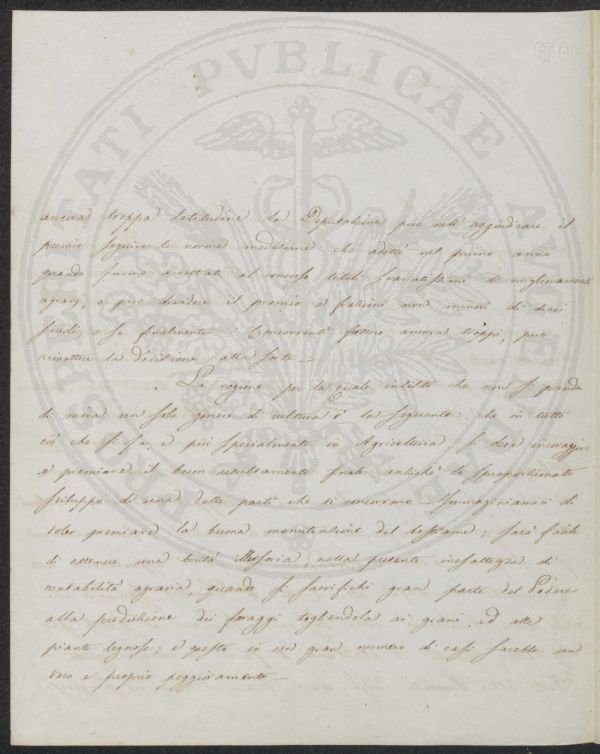 PROSPERITATI PVBLICAE AVGENDAE
ancora troppa latitudine la Deputazione può nell' aggiudicare il
premio seguire le norme medesime che adottò nel primo anno
quando furono accettati al concorso titoli svariatissimi di miglioramenti
agrarj; o può dividere il premio a frazioni non minori di dieci
scudi; o se finalmente i Concorrenti fossero ancora troppi, può
rimettere la decisione alla sorte —
La ragione per la quale insisto che non si prenda
di mira un solo genere di cultura è la seguente: che in tutto
ciò che si fa, e più specialmente in Agricoltura si deve incoraggire
e premiare il buon resultamento finale, antichè lo sproporzionato
sviluppo di una delle parti che vi concorrono. Immaginiamoci di
voler premiare la buona manutenzione del bestiame; sarà facile
di ottenere una bontà illusoria, nella presente inesattezza di
contabilità agraria, quando si sacrifichi gran parte del Podere
alla produzione dei foraggi togliendola ai grani, ed alle
piante legnose; e questo in un gran numero di casi sarebbe un
vero e proprio peggioramento —